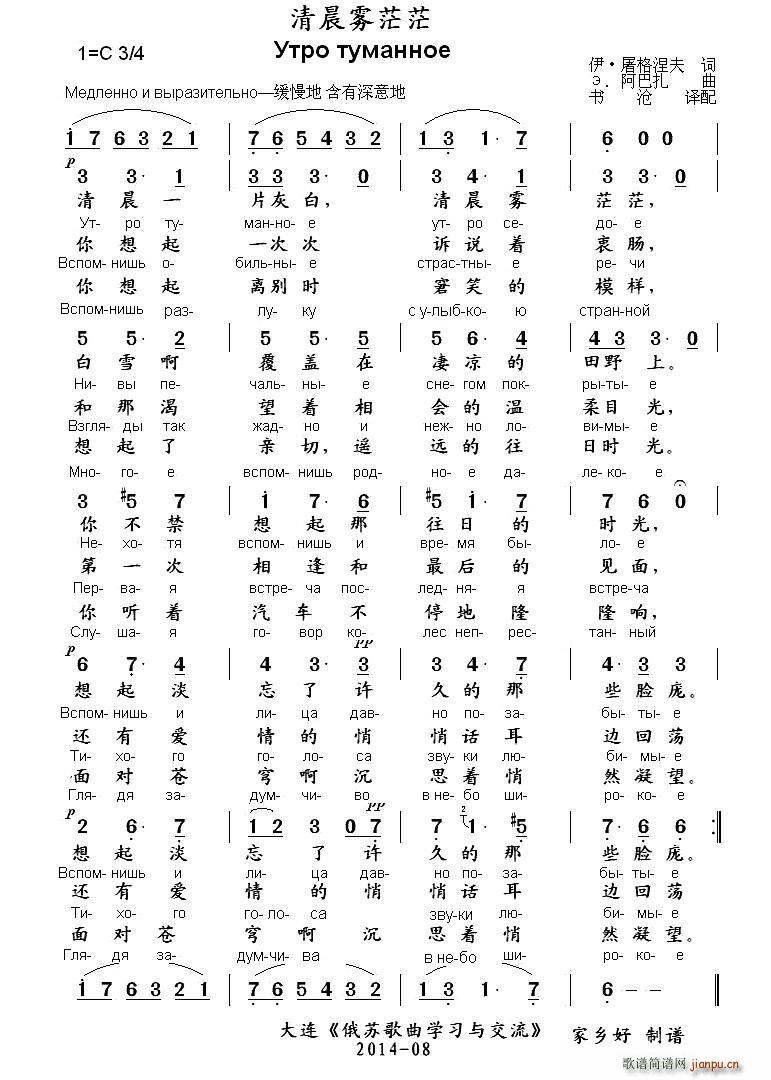 清晨雾茫茫
Утро туманное
1=C 3/4
伊·屠格涅夫 词
Э. 阿巴扎 曲
书 沧 译配
Медленно и выразительно—缓慢地 含有深意地
1 7 6 3 2 1 | 7 6 5 4 3 2 | 1 3 1· 7 | 6 0 0
p
3 3· 1 | 3 3 3· 0 | 3 4· 1 | 3 3· 0
清 晨 一 片灰 白, 清 晨 雾 茫 茫,
Ут- ро ту- ман-но- е ут- ро се- до- е
你 想 起 一次 次 诉 说 着 衷 肠,
Вспом-нишь о- биль-ны- е страс-тны- е ре- чи
你 想 起 离别 时 窘 笑 的 模 样,
Вспом-нишь раз- лу- ку с у-лыб-ко- ю стран-ной
5 5· 2 | 5 5· 5 | 5 6· 4 | 4 3 3· 0
白 雪 啊 覆 盖 在 凄 凉 的 田 野 上。
Ни- вы пе- чаль- ны- е сне- гом пок- ры-ты- е
和 那 渴 望 着 相 会 的 温 柔 目 光,
Взгля- ды так жад- но и неж- но ло- ви-мы- е
想 起 了 亲 切, 遥 远 的 往 日 时 光。
Мно- го- е вспом-нишь род- но- е да- ле- ко- е
3 #5 7 | 1 7· 6 | #5 1· 7 | 7 6 0
你 不 禁 想 起 那 往 日 的 时 光,
Не- хо- тя вспом-нишь и вре- мя бы- ло- е
第 一 次 相 逢 和 最 后 的 见 面,
Пер- ва- я встре- ча пос- лед- ня- я встре-ча
你 听 着 汽 车 不 停 地 隆 隆 响,
Слу- ша- я го- вор ко- лес неп-рес- тан-ный
p pp
6 7· 4 | 4 3· 3 | 3 4· 7 | 4 3 3
想 起 淡 忘 了 许 久 的 那 些 脸 庞。
Вспом- нишь и ли- ца дав- но по- за- бы- ты- е
还 有 爱 情 的 悄 悄 话 耳 边 回 荡
Ти- хо- го го- ло- са зву- ки лю- би- мы- е
面 对 苍 穹 啊 沉 思 着 悄 然 凝 望。
Гля- дя за- дум- чи- во в не- бо ши- ро- ко- е
p pp
2 6· 7 | 1 2 3 0 7 | 7 2 1· #5 | 7· 6 6 :‖
想 起 淡 忘 了 许 久 的 那 些 脸 庞。
Вспом- нишь и ли- ца дав- но по- за- бы- ты- е
还 有 爱 情 的 悄 悄 话 耳 边 回 荡
Ти- хо- го го- ло- са зву- ки лю- би- мы- е
面 对 苍 穹 啊 沉 思 着 悄 然 凝 望。
Гля- дя за- дум- чи- ва в не- бо ши- ро- ко- е
1 7 6 3 2 1 | 7 6 5 4 3 2 | 1 3 1· 7 | 6 – –
大连《俄苏歌曲学习与交流》 家乡好 制谱
2014-08
歌谱简谱网
jianpu.cn